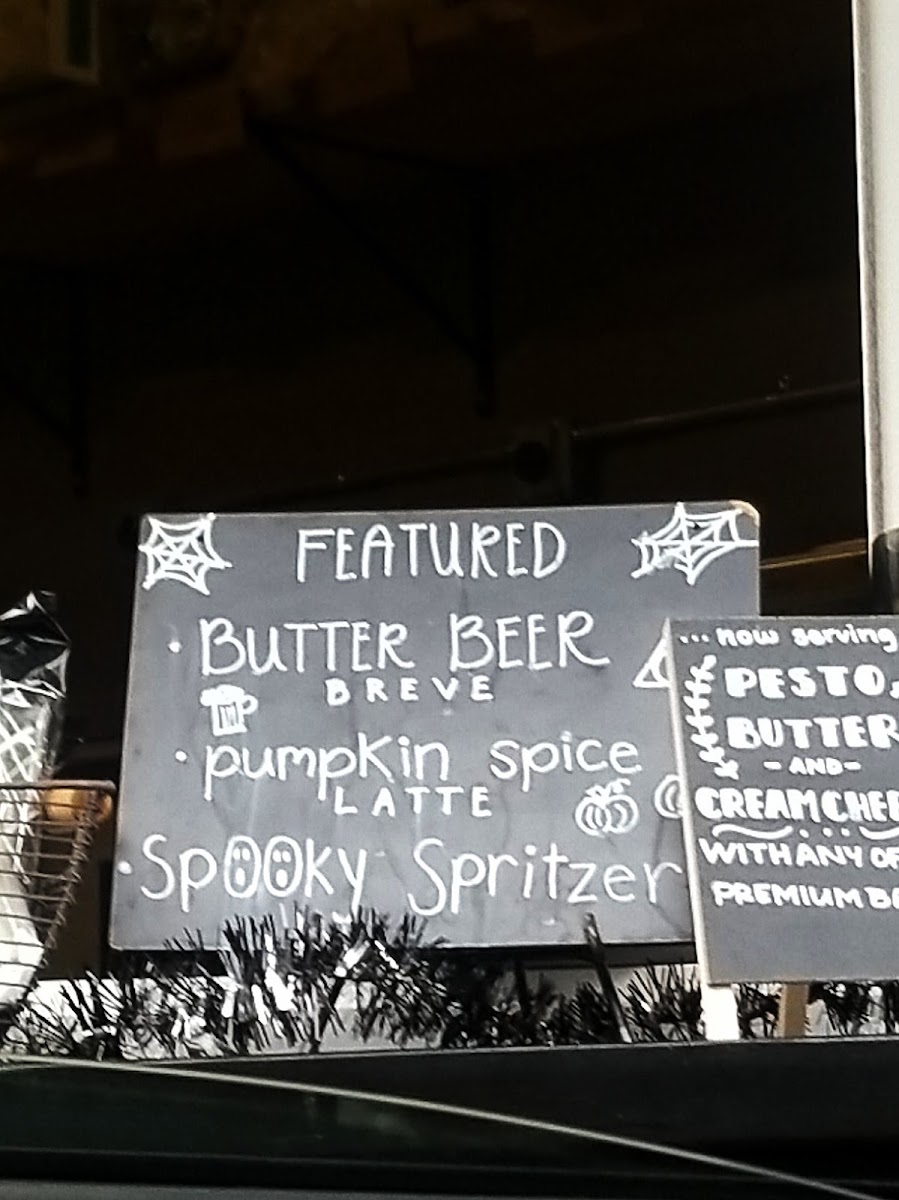 FEATURED
• BUTTER BEER
BREVE
• pumpkin spice
LATTE
• Spooky Spritzer
... now serving
PESTO,
BUTTER
- AND -
WITH ANY OF
PREMIUM